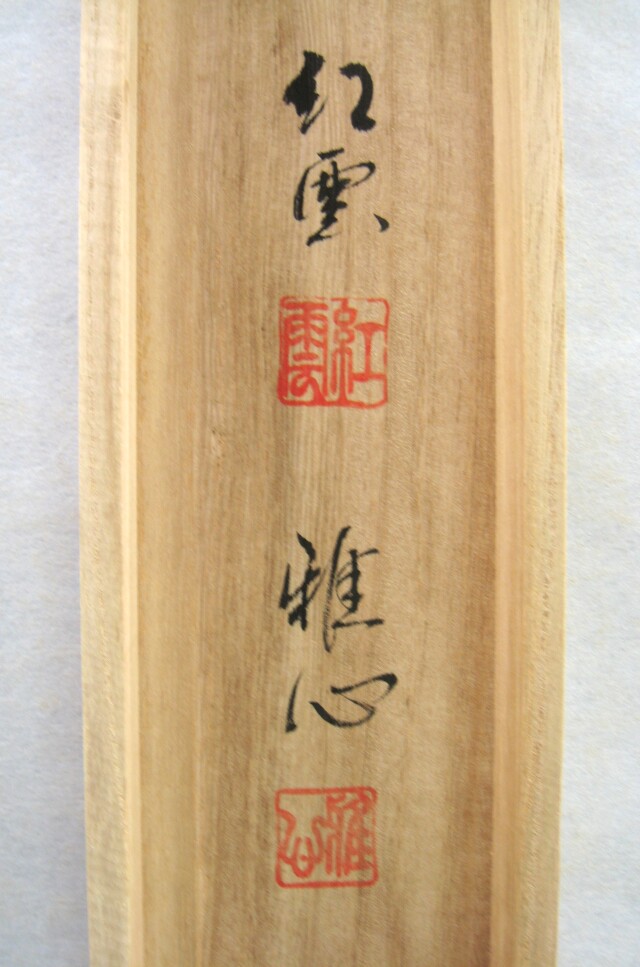 紅雲
紅雲
雅心
雅心